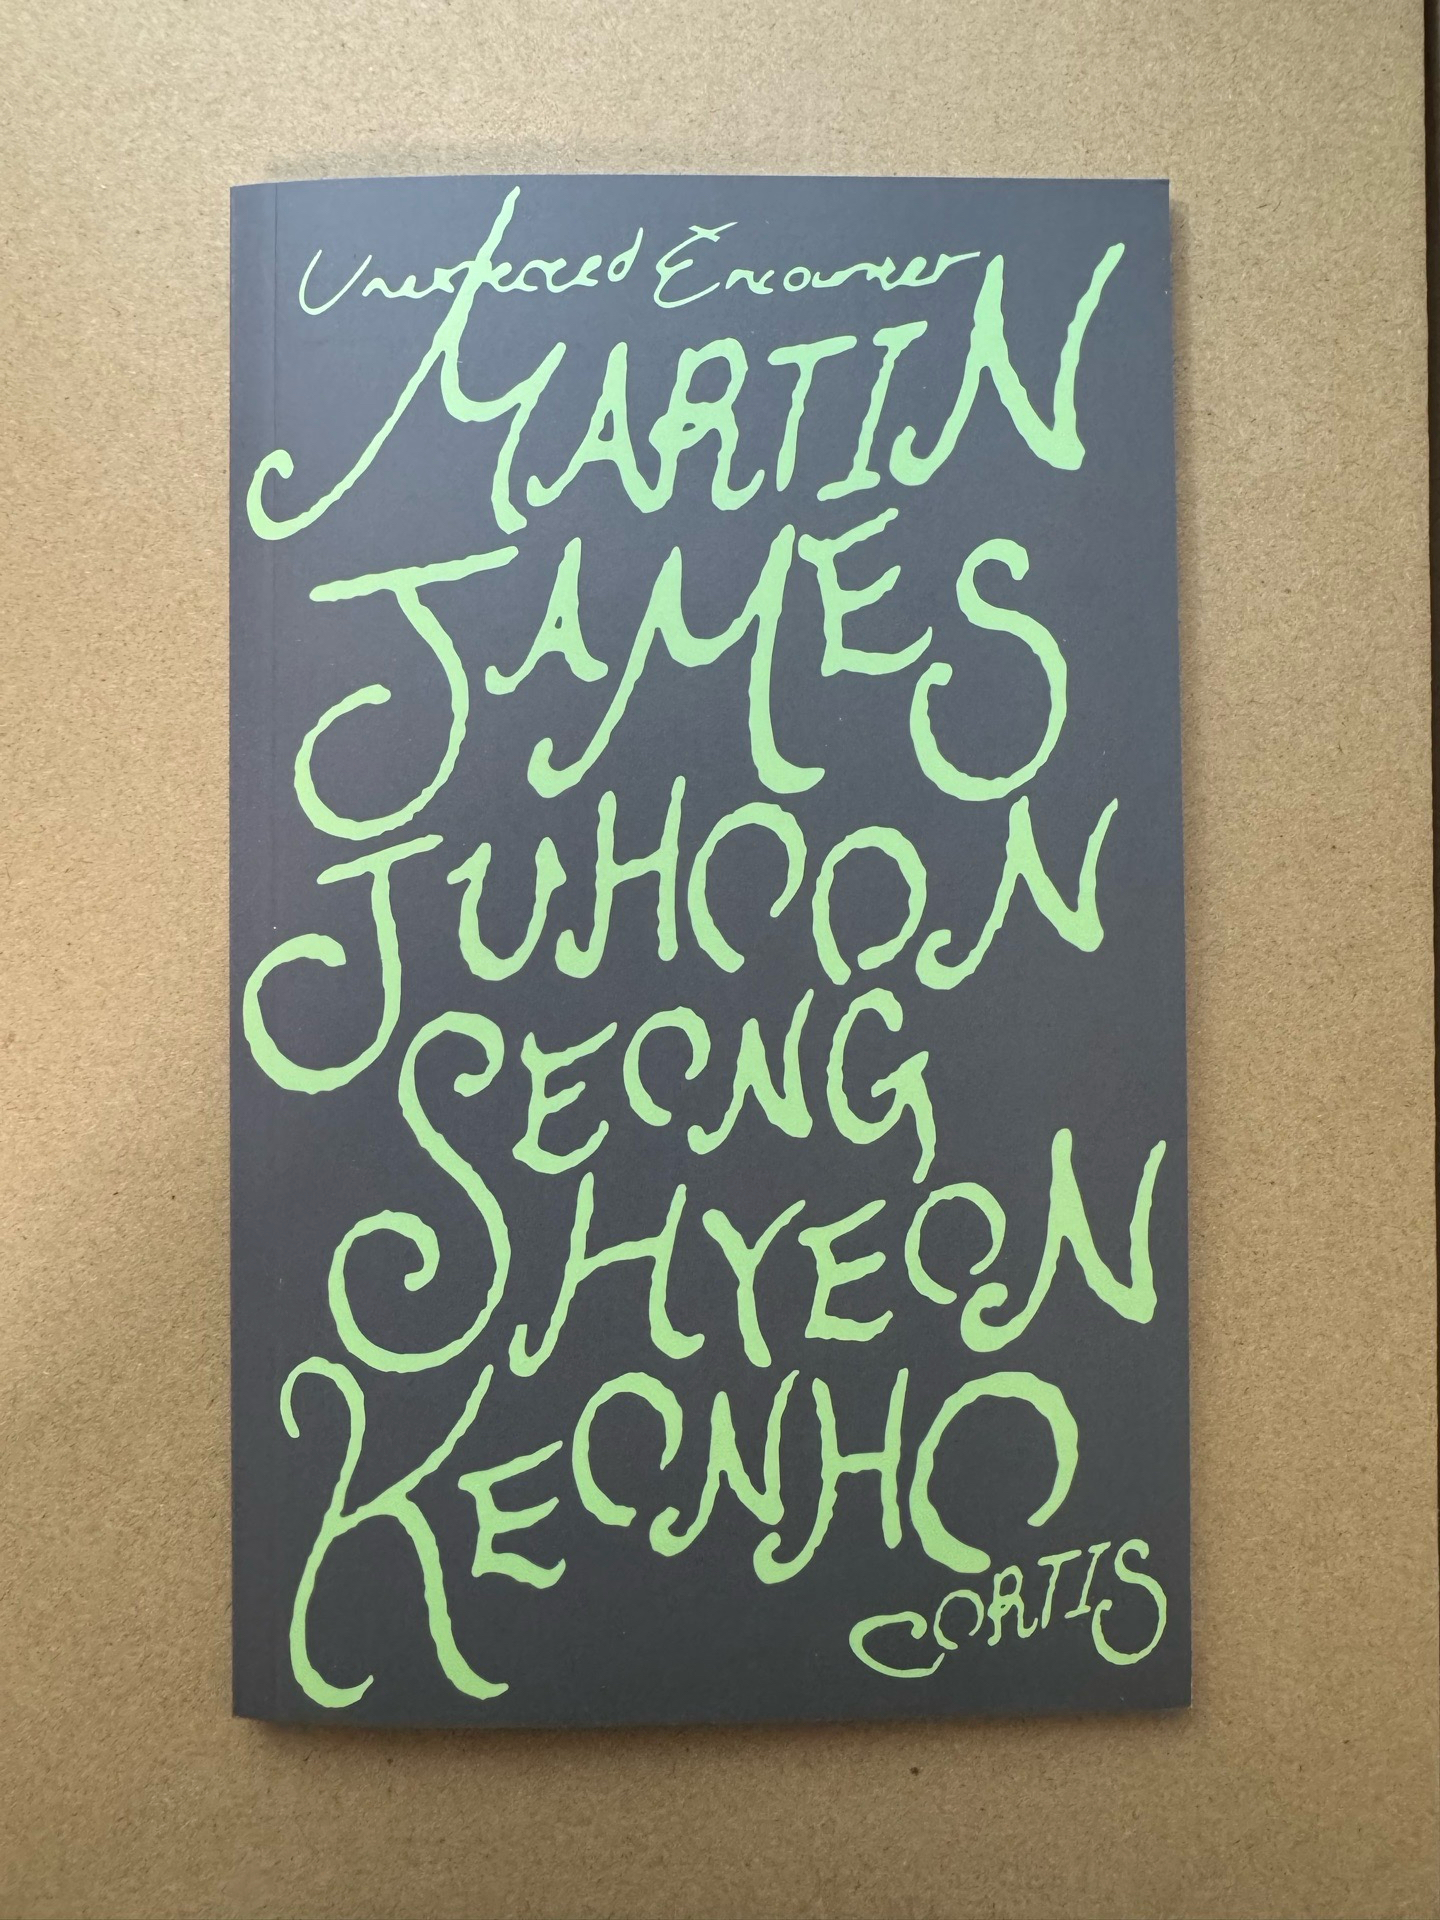 Unexpected Encounter
MARTIN
JAMES
JUHOON
SEONG
HYEON
KEONHO
CORTIS